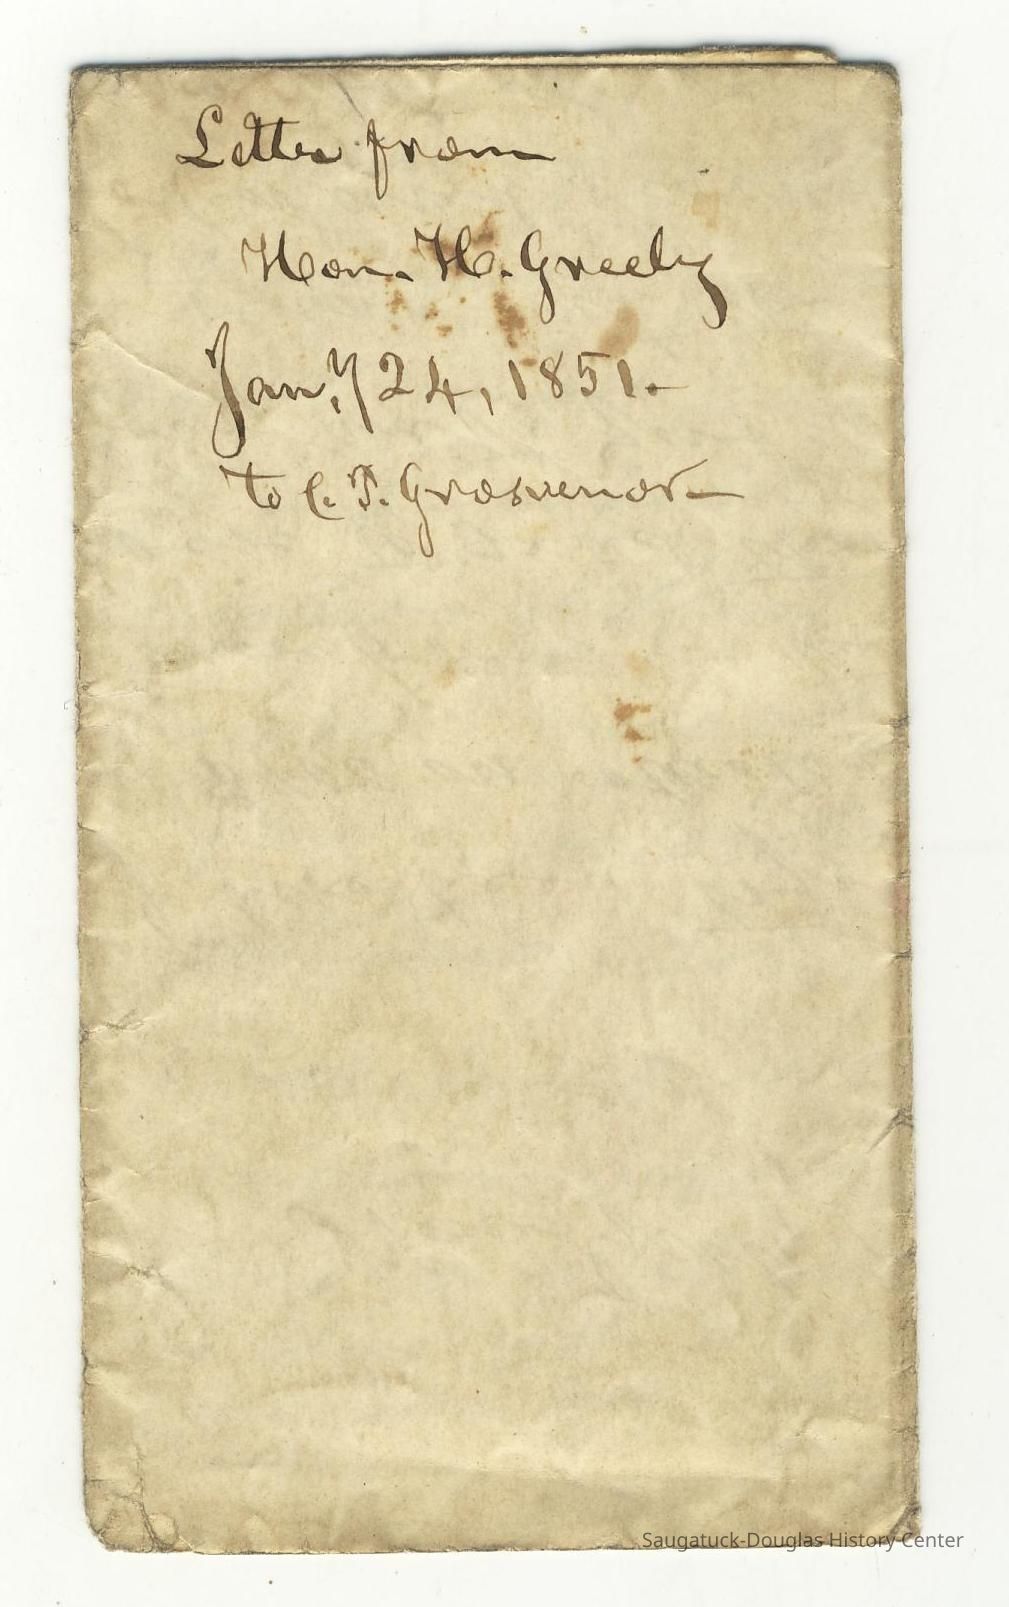 Letter from
Hon. H. Greely
Jan.y 24, 1851.
to C. T. Grosvenor
Saugatuck-Douglas History Center